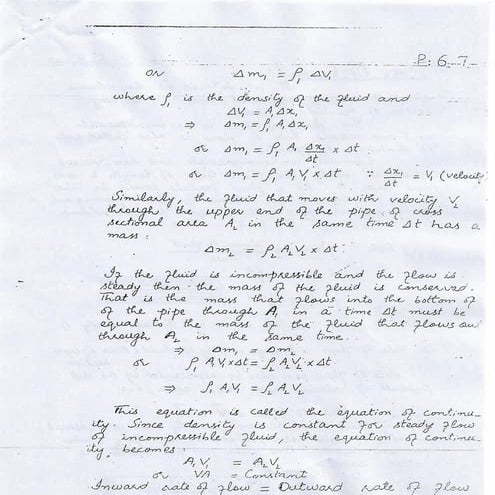 P: 6.7
or Δm₁ = ρ₁ ΔV₁
where ρ₁ is the density of the fluid and
ΔV₁ = A₁Δx₁
⇒ Δm₁ = ρ₁ A₁Δx₁
or Δm₁ = ρ₁ A₁ Δx₁/Δt × Δt
or Δm₁ = ρ₁ A₁V₁ × Δt ∵ Δx₁/Δt = V₁ (velocity
Similarly, the fluid that moves with velocity V₂
through the upper end of the pipe of cross
sectional area A₂ in the same time Δt has a
mass:
Δm₂ = ρ₂ A₂V₂ × Δt
If the fluid is incompressible and the flow is
steady then the mass of the fluid is conserved.
That is the mass that flows into the bottom of
of the pipe through A₁ in a time Δt must be
equal to the mass of the fluid that flows out
through A₂ in the same time.
⇒ Δm₁ = Δm₂
or ρ₁ A₁V₁×Δt = ρ₂ A₂V₂×Δt
⇒ ρ₁ A₁V₁ = ρ₂ A₂V₂
This equation is called the equation of continu-
ity. Since density is constant for steady flow
of incompressible fluid, the equation of continu-
ity becomes:
A₁V₁ = A₂V₂
or VA = Constant
Inward rate of flow = Outward rate of flow